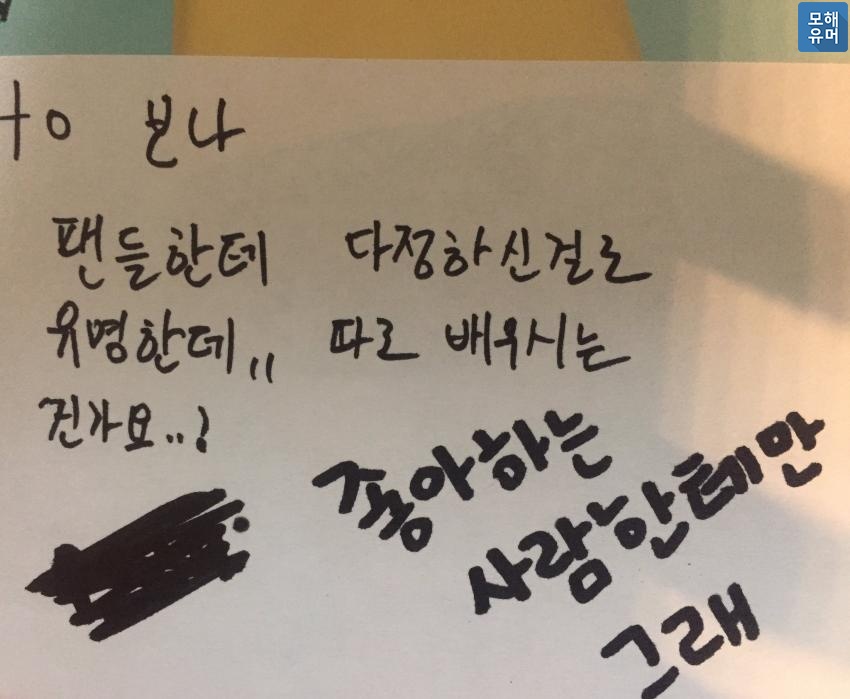 모해
유머
to 보나
팬들한테 다정하신걸로
유명한데,, 따로 배우시는
건가요..?
좋아하는
사람한테만
그래